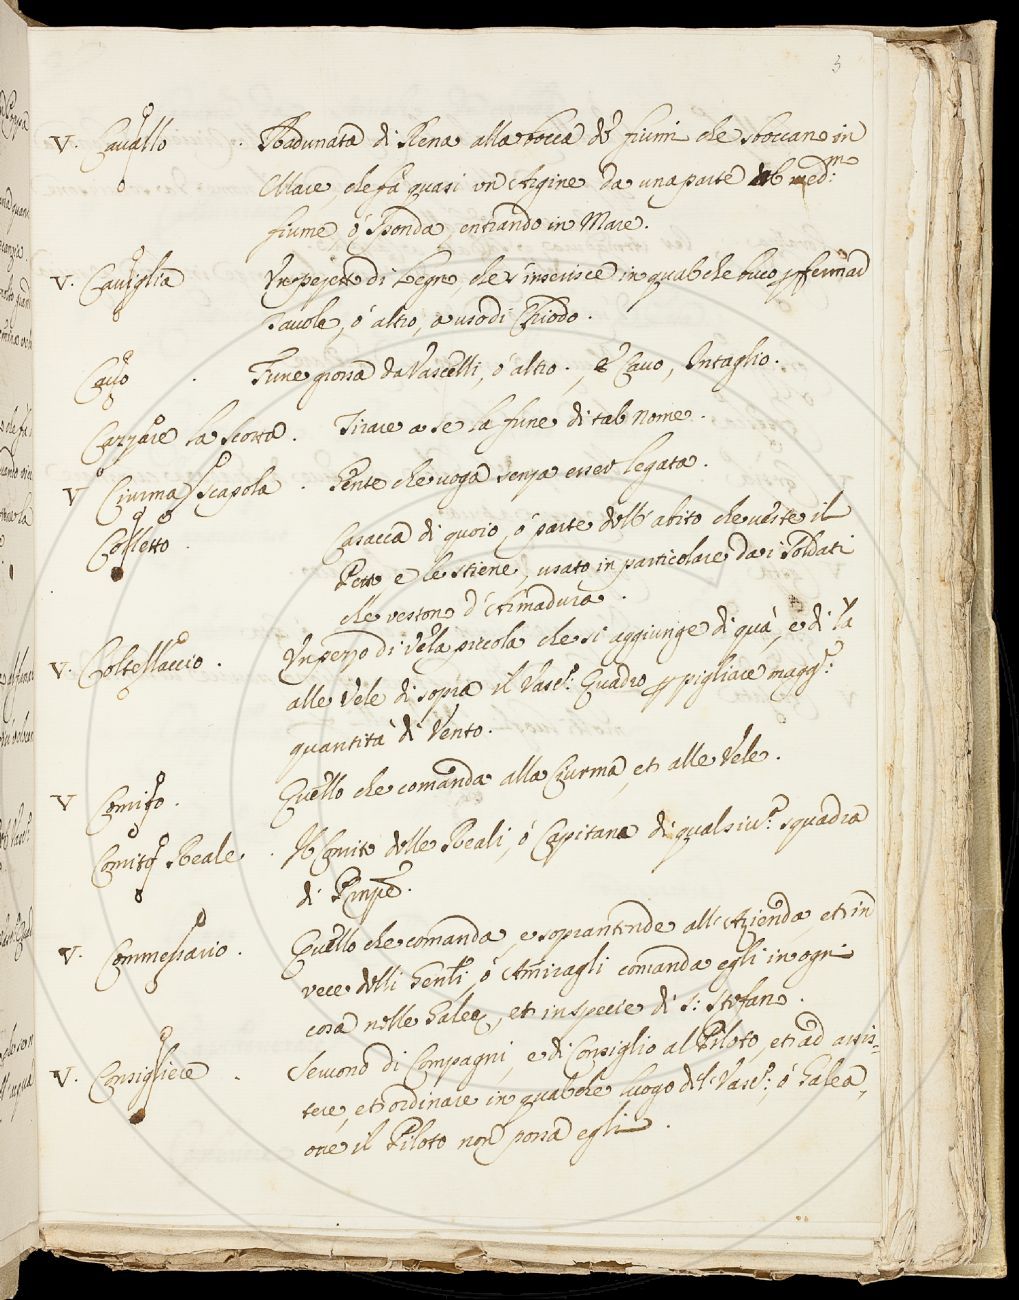 3
V. Cavallo. Radunata di Rena alla bocca de fiumi che sboccano in
Mare, che fà quasi un Argine da una parte del med.mo
fiume, ó sponda, entrando in Mare.
V. Caviglia Un pezetto di Legno, che s'inserisce in qualche buco p fermar
Tavole, ó altro, a uso di Chiodo.
Cavo. Fune grossa da Vascelli, ó altro., Cavo, Intaglio.
Cazzare la Scotta. Tirare a se la fune di tal nome.
V Ciurma Scapola. Gente che voga senza esser legata.
Colletto. Casacca di quoio, ó parte dell'abito che veste il
Petto e le stiene, usato in particolare da i Soldati
che veston d'Armadura.
V. Coltellaccio. Un pezzo di vela piccola che si aggiunge di quà, e di là
alle Vele di sopra il Vasc. Quadro p pigliare magg.r
quantità di Vento.
V Comito. Quello che comanda alla Ciurma, et alle Vele.
Comito Reale. Il Comito delle Reali, ó Capitana di qualsiv. squadra
di
V. Commessario. Quello che comanda, e soprantende all'Azienda, et in
vece delli Gen.li, ó Amiragli comanda egli in ogni
cosa nelle Galee, et in specie di S: Stefano.
V. Consigliere. Servono di Compagni, e di Consiglio al Piloto, et ad assis=
tere, et ordinare in qualche luogo del Vasc., ó Galea,
ove il Piloto non possa egli.